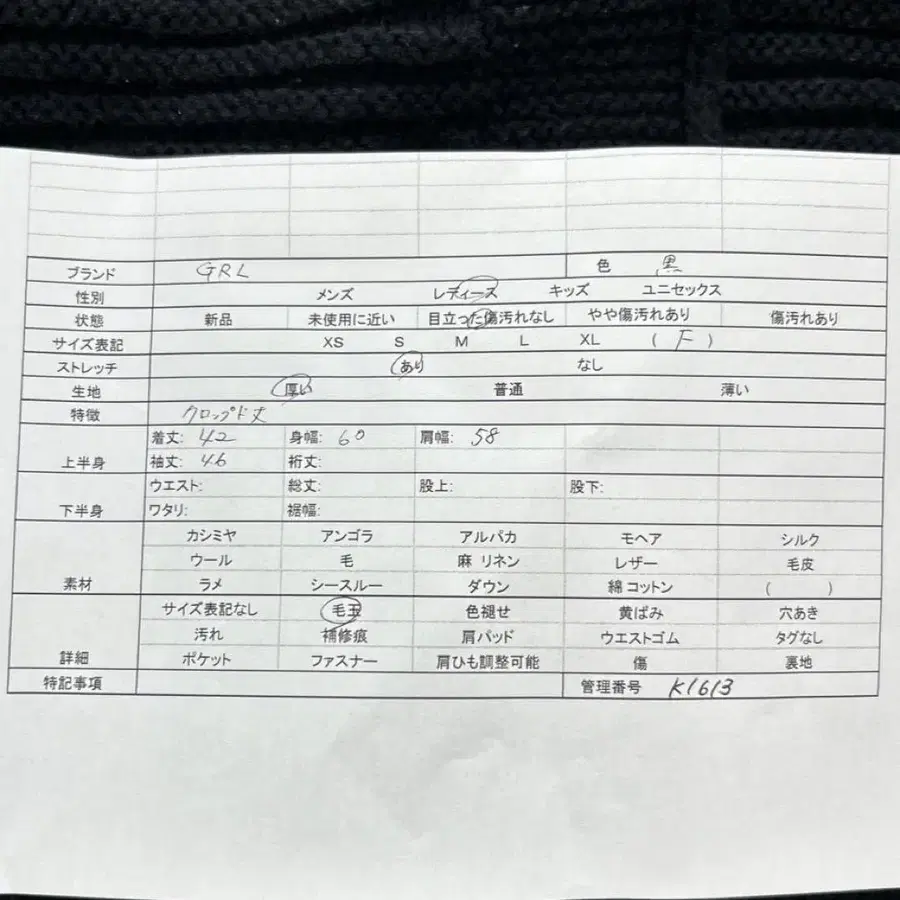 ブランド GRL 色 黒
性別 メンズ レディース キッズ ユニセックス
状態 新品 未使用に近い 目立った傷汚れなし やや傷汚れあり 傷汚れあり
サイズ表記 XS S M L XL ( F )
ストレッチ あり なし
生地 厚い 普通 薄い
特徴 クロップド丈
着丈: 42 身幅: 60 肩幅: 58
上半身 袖丈: 46 裄丈:
ウエスト: 総丈: 股上: 股下:
下半身 ワタリ: 裾幅:
カシミヤ アンゴラ アルパカ モヘア シルク
ウール 毛 麻 リネン レザー 毛皮
素材 ラメ シースルー ダウン 綿 コットン ( )
サイズ表記なし 毛玉 色褪せ 黄ばみ 穴あき
汚れ 補修痕 肩パッド ウエストゴム タグなし
詳細 ポケット ファスナー 肩ひも調整可能 傷 裏地
特記事項 管理番号 K1613